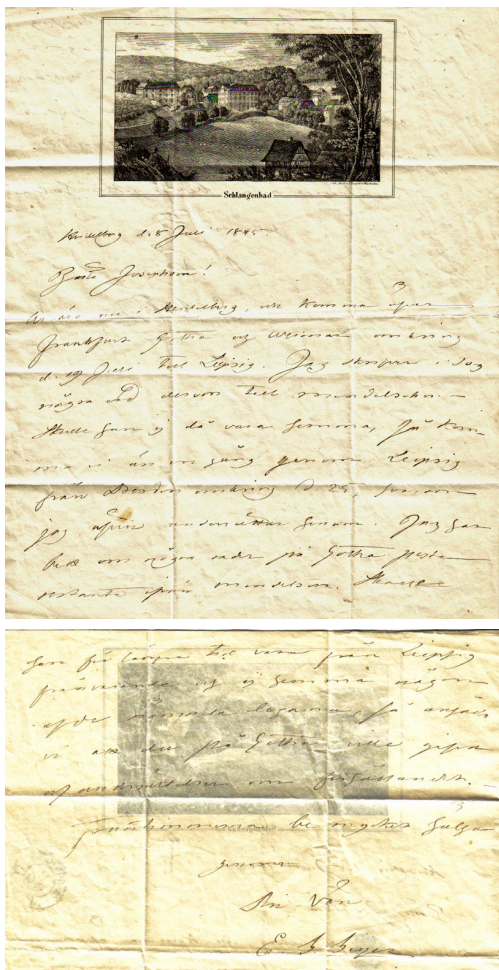 Schlangenbad
Heidelberg d. 8 Juli 1845
Bäste Josephson!
nu i Heidelberg, och komma öfver
Frankfurt Gotha og Weimar omkring
d. 19 Juli till Leipzig. Jag skrifver i dag
några ord derom till Mendelsohn. –
Skulle han ej då vara hemma, så kom-
ma vi än en gång genom Leipzig
från Dresden omkring d. 25, hvarom
jag äfven underrättar honom. Jag har
bedt om några rader på Gotha poste
restante från Mendelsohn. Skulle
han för längre tid vara från Leipzig
frånvarande og ej hemma någon
af de nämnda dagarna, så
vi att du på Gotha ville gifva
om förhållandet.
be mycket helsa
genom
Din Vän
E. G. Geijer